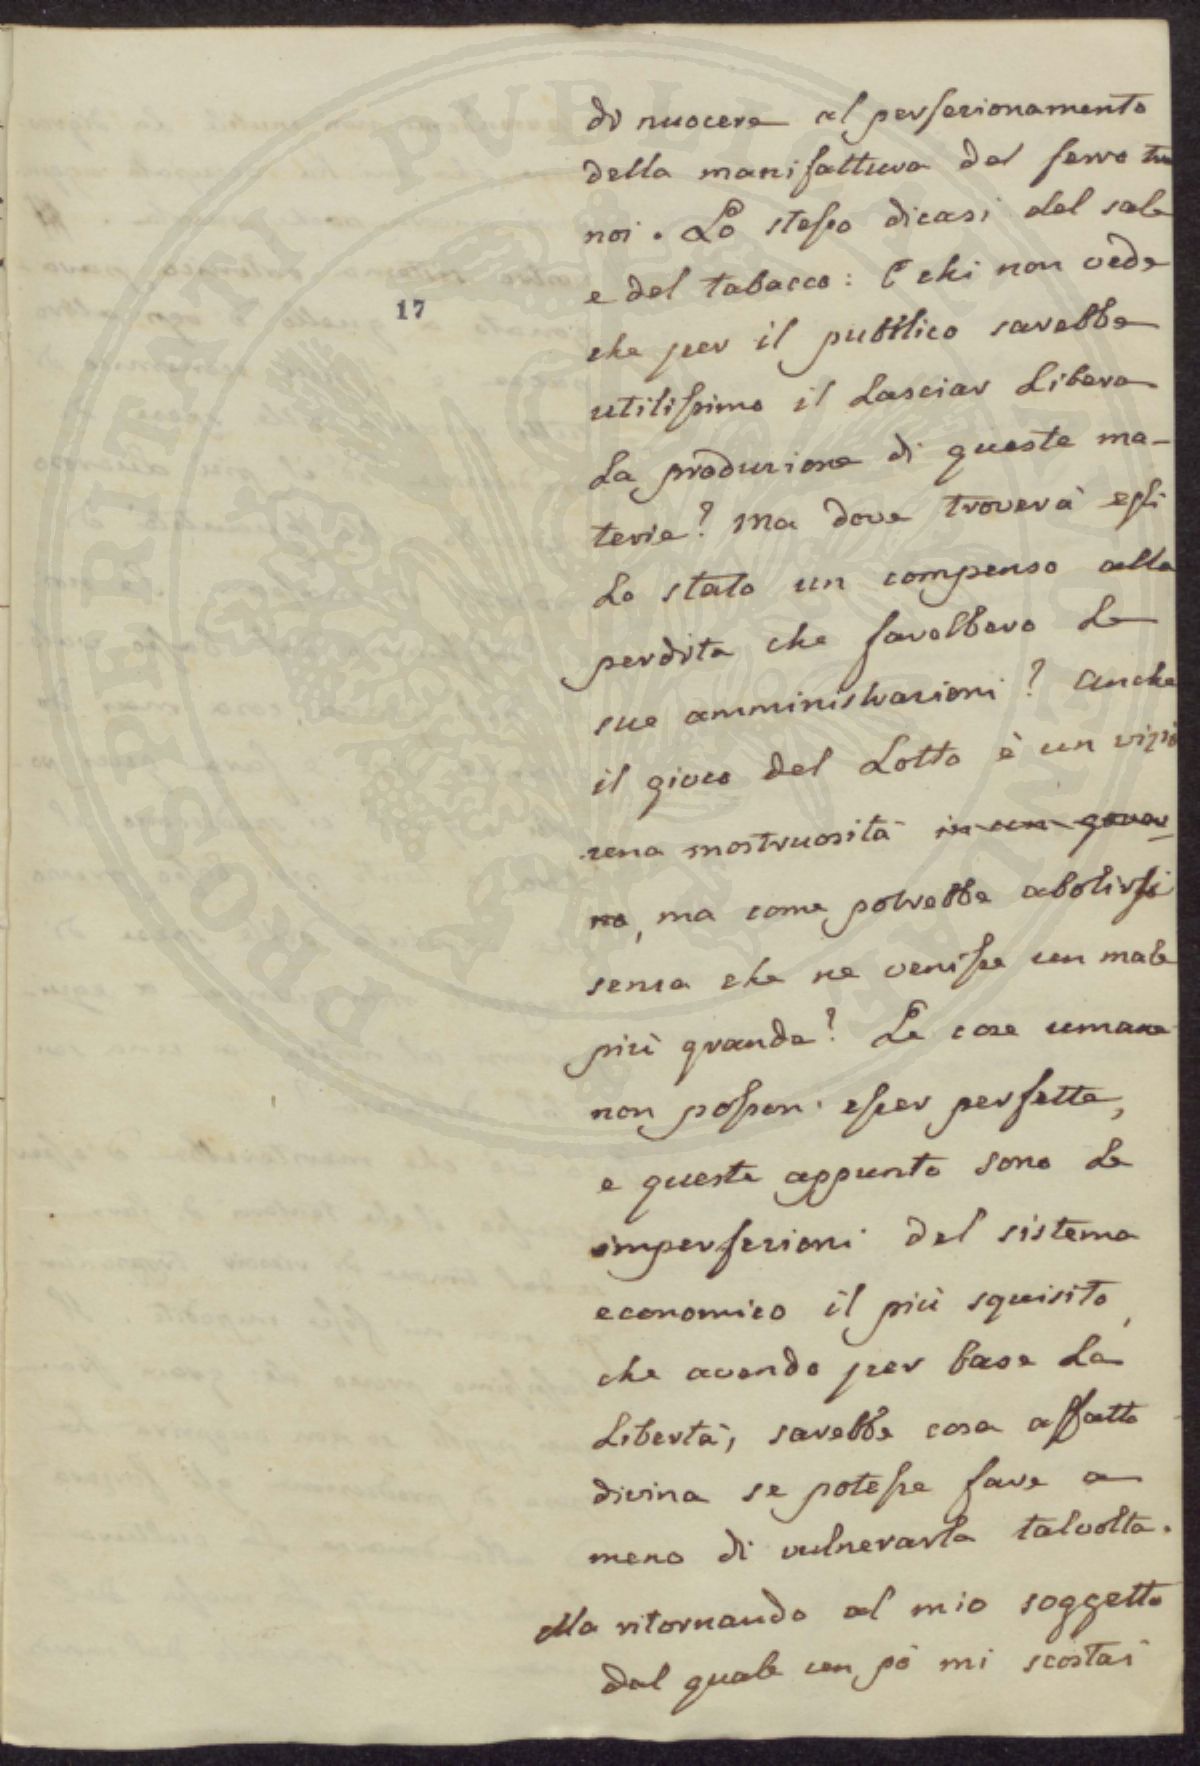 17
di nuocere al perfezionamento
della manifattura del ferro tra
noi. Lo stesso dicasi del sale
e del tabacco: E chi non vede
che per il pubblico sarebbe
utilissimo il Lasciar Libera
La produzione di queste ma-
terie? Ma dove troverà egli
Lo stato un compenso alla
perdita che farebbero Le
sue amministrazioni? Anche
il gioco del Lotto è un vizio
una mostruosità in un gover-
no, ma come potrebbe abolirsi
senza che ne venisse un male
più grande? Le cose umane
non posson esser perfette,
e queste appunto sono Le
imperfezioni del sistema
economico il più squisito,
che avendo per base La
Libertà, sarebbe cosa affatto
divina se potesse fare a
meno di vulnerarla talvolta.
Ma ritornando al mio soggetto
dal quale un pò mi scostai
PROSPERITATI PVBLICAE AVGENDAE